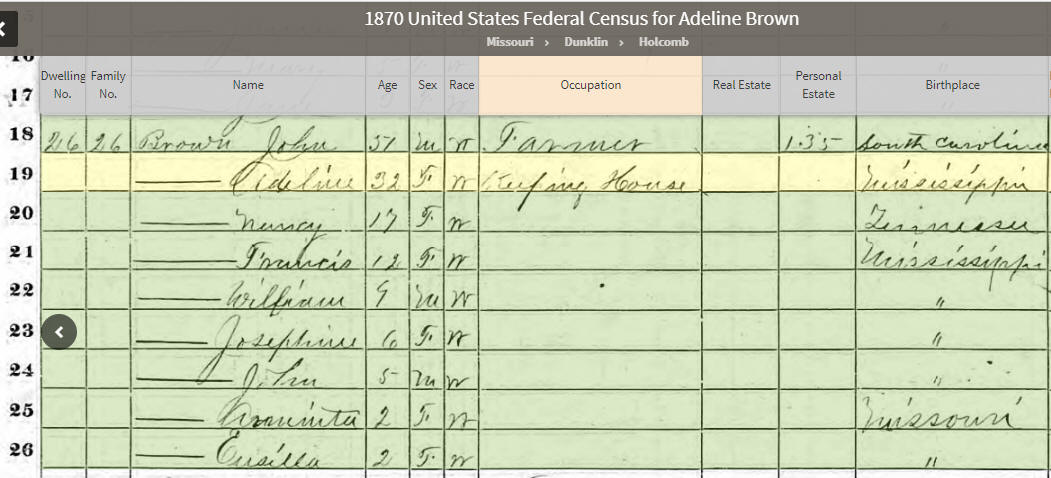 1870 United States Federal Census for Adeline Brown
Missouri > Dunklin > Holcomb
Dwelling No. Family No. Name Age Sex Race Occupation Real Estate Personal Estate Birthplace
17
18 26 26 Brown John 51 M W Farmer 135 South Carolina
19 —— Adeline 32 F W Keeping House Mississippi
20 —— Nancy 17 F W Tennessee
21 —— Francis 12 F W Mississippi
22 —— William 9 M W "
23 —— Josephine 6 F W "
24 —— John 5 M W "
25 —— Araminta 2 F W Missouri
26 —— 2 F W "